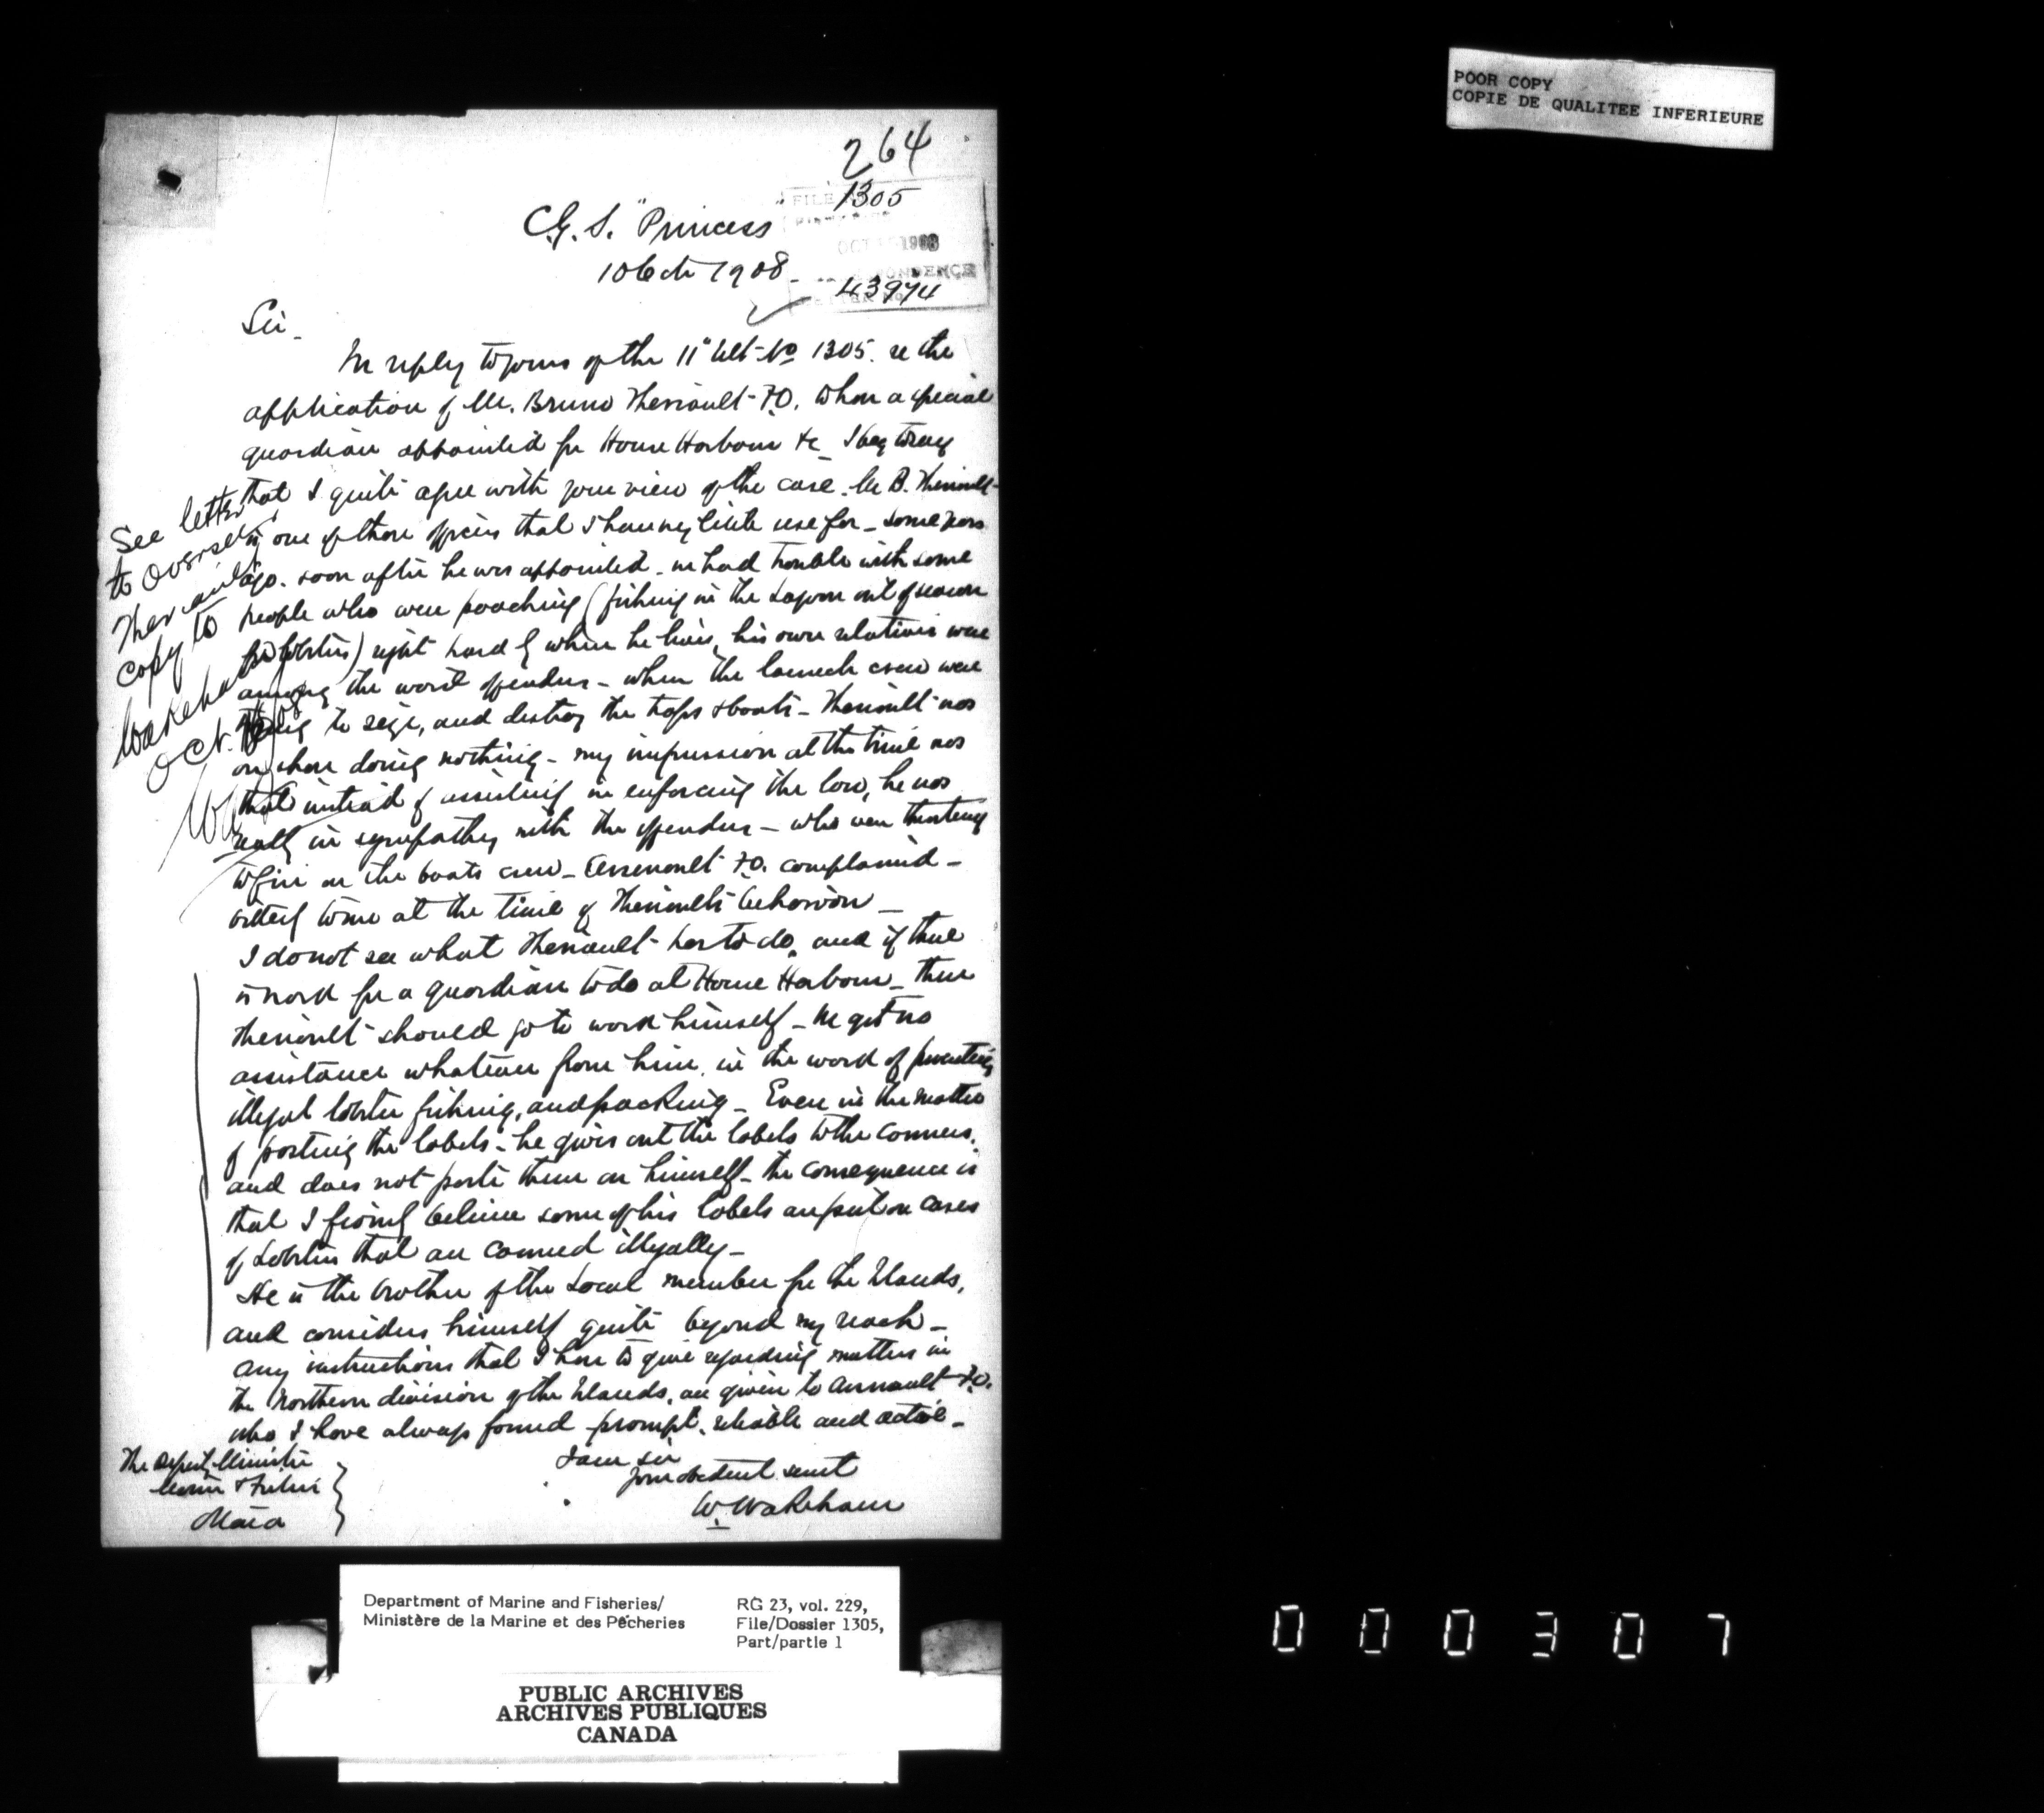 POOR COPY
COPIE DE QUALITEE INFERIEURE
264
FILE 1305
C.G.S. "Princess"
OCT 1908
10 Oct 1908 -
43974
Sir -
In reply to yours of the 11" Ult - No 1305. re the
application of Mr. Bruno Theriault - F.O. to have a special
guardian appointed for House Harbour &c - I beg to say
that I quite agree with your view of the case. Mr B. Theriault -
is one of those officers that I have very little use for - some years
ago. soon after he was appointed - we had trouble with some
people who were poaching (fishing in the Lagoon out of season
for lobsters) right hard by where he lives, his own relatives were
among the worst offenders - when the launch crew were
trying to seize, and destroy the traps & boats - Theriault was
on shore doing nothing - my impression at the time was
that instead of assisting in enforcing the law, he was
really in sympathy with the offenders - who were threatening
to fire on the boats crew - Arsenault F.O. complained -
bitterly to me at the time of Theriault's behavior -
I do not see what Theriault has to do, and if there
is work for a guardian to do at House Harbour - then
Theriault should go to work himself - We get no
assistance whatever from him, in the work of preventing
illegal lobster fishing, and packing - Even in the matter
of pasting the labels - he gives out the labels to the canners,
and does not paste them on himself - the consequence is
that I firmly believe some of his labels are put on cases
of Lobsters that are canned illegally -
He is the brother of the Local member for the Islands,
and considers himself quite beyond my reach -
any instructions that I have to give regarding matters in
the Northern division of the Islands, are given to Arsenault F.O.
who I have always found prompt, reliable and active -
I am sir
your obedient servt
W. Wakeham
The Deputy Minister
Marine & Fisheries
Ottawa
See letter
to Overseer
Theriault
copy to
Wakeham
Oct.
Department of Marine and Fisheries/
Ministère de la Marine et des Pêcheries
RG 23, vol. 229,
File/Dossier 1305,
Part/partie 1
PUBLIC ARCHIVES
ARCHIVES PUBLIQUES
CANADA
000307